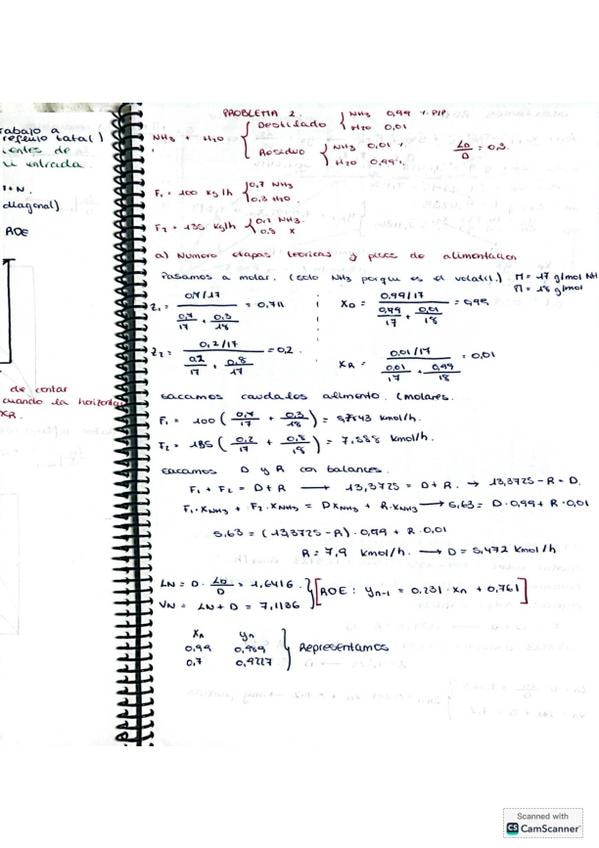 rabajo a
reflujo total)
ientes de
entrada.
1+N.
diagonal)
ROE
de contar
cuando la horizontal
XR.
PROBLEMA 2.
NH3 + H2O
Destilado
NH3 0,99 % P/P,
H2O 0,01
Residuo
NH3 0,01 %
H2O 0,99 %
L0/D = 0,3.
F1 = 100 Kg/h { 0,7 NH3
0,3 H2O.
F2 = 135 Kg/h { 0,2 NH3.
0,8 x
a) Numero etapas teoricas y pisos de alimentacion
Pasamos a molar. (solo NH3 porque es el volatil.) M = 17 g/mol NH
M = 18 g/mol
Z1 = (0,7/17) / (0,7/17 + 0,3/18) = 0,711
XD = (0,99/17) / (0,99/17 + 0,01/18) = 0,99
Z2 = (0,2/17) / (0,2/17 + 0,8/17) = 0,2.
XR = (0,01/17) / (0,01/17 + 0,99/18) = 0,01
sacamos caudales alimento. (molares.
F1 = 100 (0,7/17 + 0,3/18) = 5,7843 kmol/h.
F2 = 135 (0,2/17 + 0,8/18) = 7,588 kmol/h.
sacamos D y R con balances.
F1 + F2 = D+R → 13,3725 = D+R. → 13,3725 - R = D.
F1·XNH3 + F2·XNH3 = DXNH3 + R·XNH3 → 5,63 = D·0,99 + R·0,01
5,63 = (13,3725-R)·0,99 + R·0,01
R = 7,9 kmol/h. → D = 5,472 kmol/h
LN = D · L0/D = 1,6416.
VN = LN + D = 7,1136
[ROE: yn-1 = 0.231·xn + 0,761]
xn yn
0,99 0,989
0,7 0,9227
Representamos
Scanned with
CS CamScanner